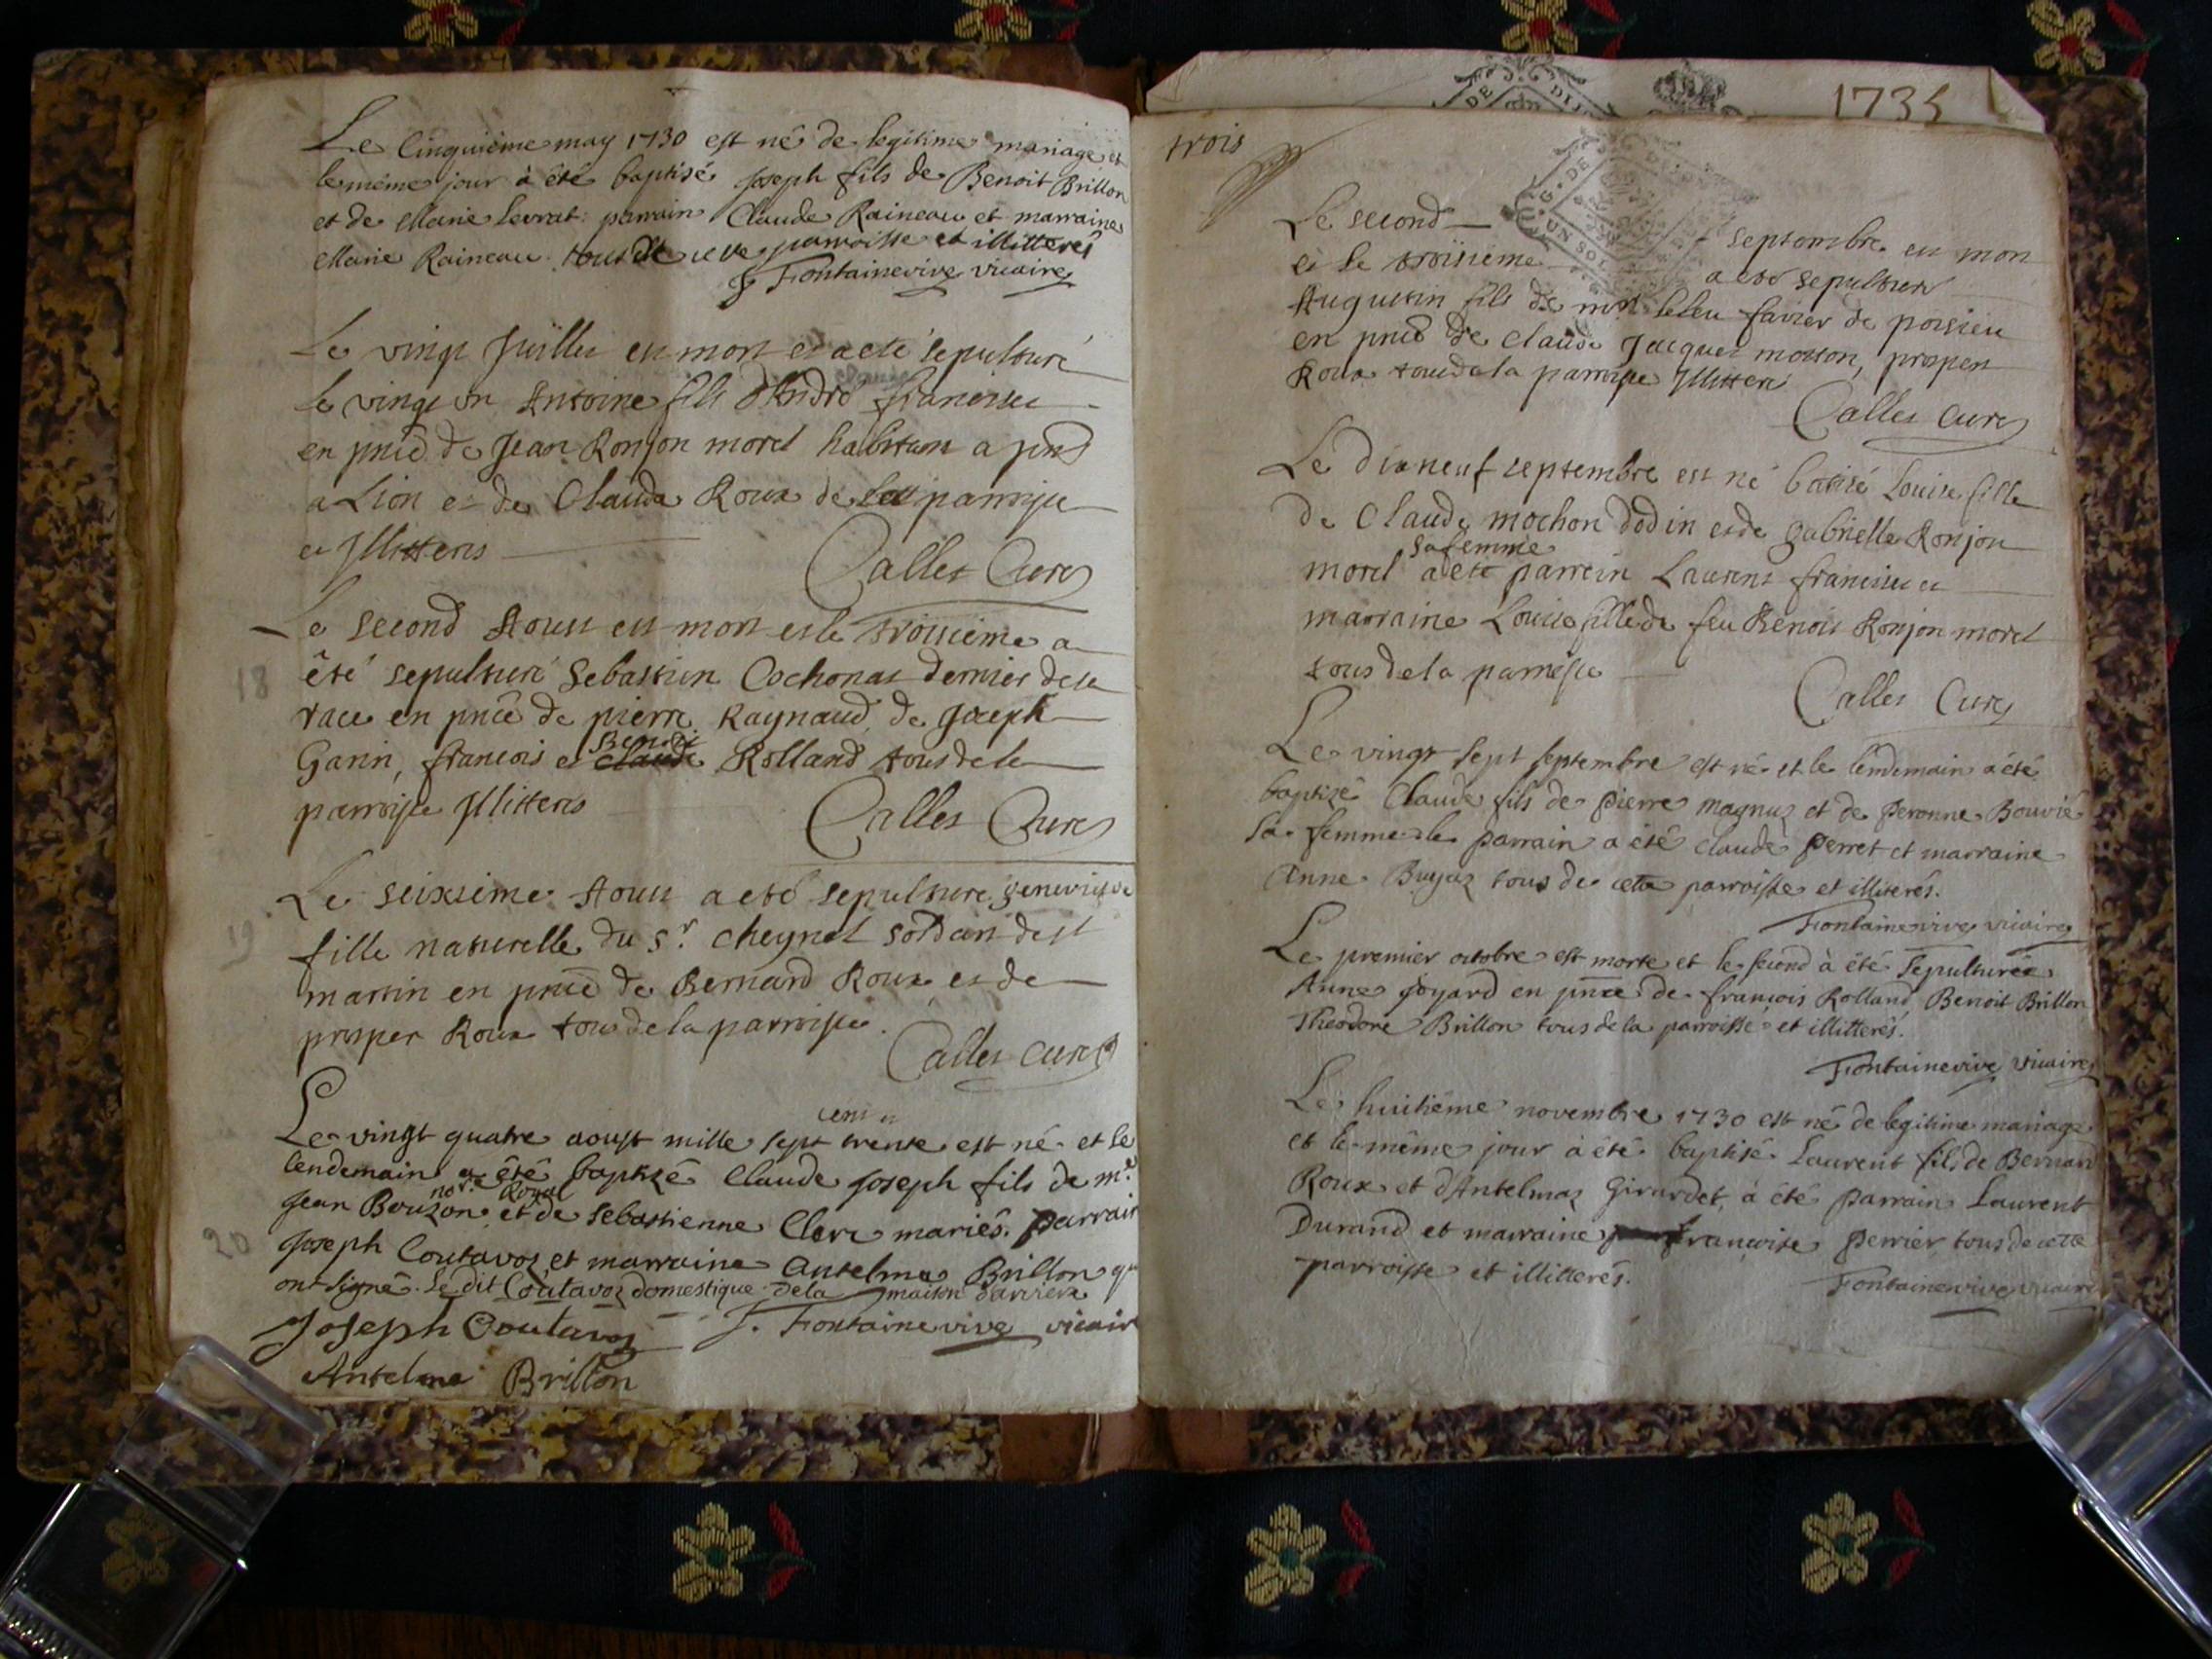 Le Cinquième may 1730 est né de legitime mariage et
le même jour à été baptisé Joseph fils de Benoit Brillon
et de Marie Levrat: parrain Claude Raineau et marraine
Marie Raineau tous de cette parroisse et illitterés
J Fontainevive vicaire
Le vingt Juillet est mort et a eté sepulturé
le vingt un Antoine fils d'André francisco
en pnce de Jean Ronjon morel habitant a
a Lion et de Claude Roux de la parroisse
et Illitterés
Calles Curé
Le second Aoust est mort et le troisieme a
18
été sepulturé Sebastien Cochonat dernier de sa
race en pnce de pierre Raynaud, de Joseph
Benoit
Garin, francois et claude Rolland tous de la
parroisse Illitterés
Calles Curé
Le seixsieme Aoust a eté sepulturé genevieve
19
fille naturelle du Sr. cheynel soldan de st
martin en pnce de Bernard Roux et de
prosper Roux tous de la parroisse.
Calles curé
cent
Le vingt quatre aoust mille sept trente est né et le
lendemain a été baptizé Claude Joseph fils de me
nore. Royal
Jean Bouzon et de Sebastienne Clerc mariés. parrain
20
Joseph Coutavoz et marraine Antelma Brillon qui
ont signé. Le dit Coutavoz domestique de la maison
Joseph Coutavoz
J. Fontainevive vicaire
Antelme Brillon
DE DI
1735
trois
G. DE
UN SOL
Le second
septembre est mort
et le troisieme
a eté sepulturé
Augustin fils de favier de poisieu
en pnce de claude Jacques motton, prosper
Roux tous de la parroisse Illitteré
Calles curé
Le dixneuf septembre est né batisé Louise fille
de Claude mochon dodin et de gabrielle Ronjon
sa femme
morel a eté parrein Laurens francisco et
marraine Louise fille de feu Benoit Ronjon morel
tous de la parroisse
Calles Curé
Le vingt sept septembre est né et le lendemain a été
baptizé Claude fils de pierre magnuz et de peronne Bouvié
sa femme le parrain a été claude perret et marraine
Anne Bugaz tous de cette parroisse et illiterés.
Fontainevive vicaire
Le premier octobre est morte et le second à été sepulturée
Anne Joyard en pnce de francois Rolland Benoit Brillon
Theodore Brillon tous de la parroisse et illitterés.
Fontainevive vicaire
Le huitième novembre 1730 est né de legitime mariage
et le même jour à été baptisé Laurent fils de Bernard
Roux et d'Antelmaz Girardet, à été parrain Laurent
Durand et marraine francoise perrier tous de cette
parroisse et illitterés.
Fontainevive vicaire